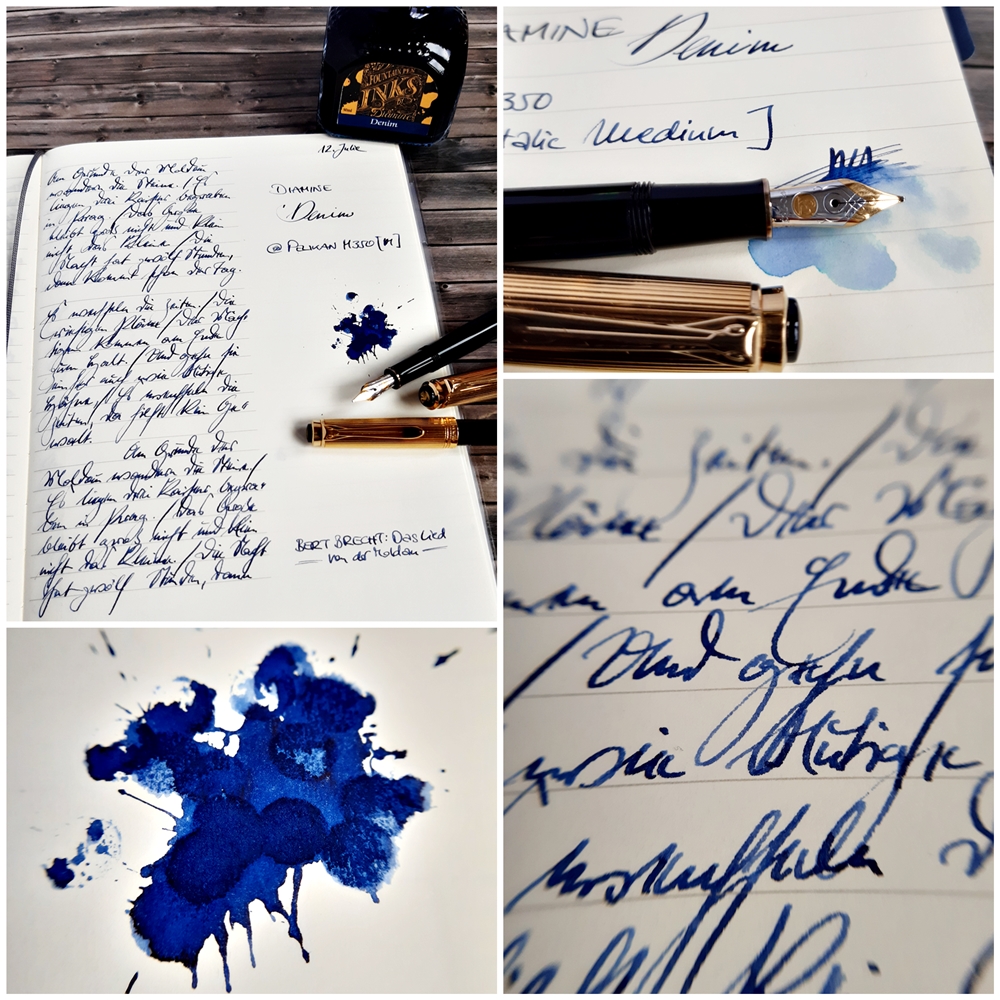 FOUNTAIN PEN
INKS
Diamine
Denim
12. Julie
Am Grunde der Moldau,
wandern die Steine. / Es
liegen drei Kaiser begraben
in Prag. / Das Große
bleibt groß nicht und klein
nicht das Kleine. / Die
Nacht hat zwölf Stunden,
dann kommt schon der Tag.
Es wechseln die Zeiten. / Die
riesigen Pläne / Der Mächt
igen kommen am Ende
zum Halt. / Und gehn sie
auch wie blutige
Hähne / Es wechseln die
Zeiten, da hilft kein Ge-
walt.
Am Grunde der
Moldau wandern die Steine /
Es liegen drei Kaiser begra-
ben in Prag. / Das Große
bleibt groß nicht und klein
nicht das Kleine. / Die Nacht
hat zwölf Stunden, dann
DIAMINE
'Denim
@ PELIKAN M350 [M]
BERT BRECHT: Das Lied
von der Moldau
AMINE Denim
350
talic Medium]
die Zeiten. / Die
Pläne / Der Mäc
men am Ende
/ Und gehn
wie blutige
wechseln